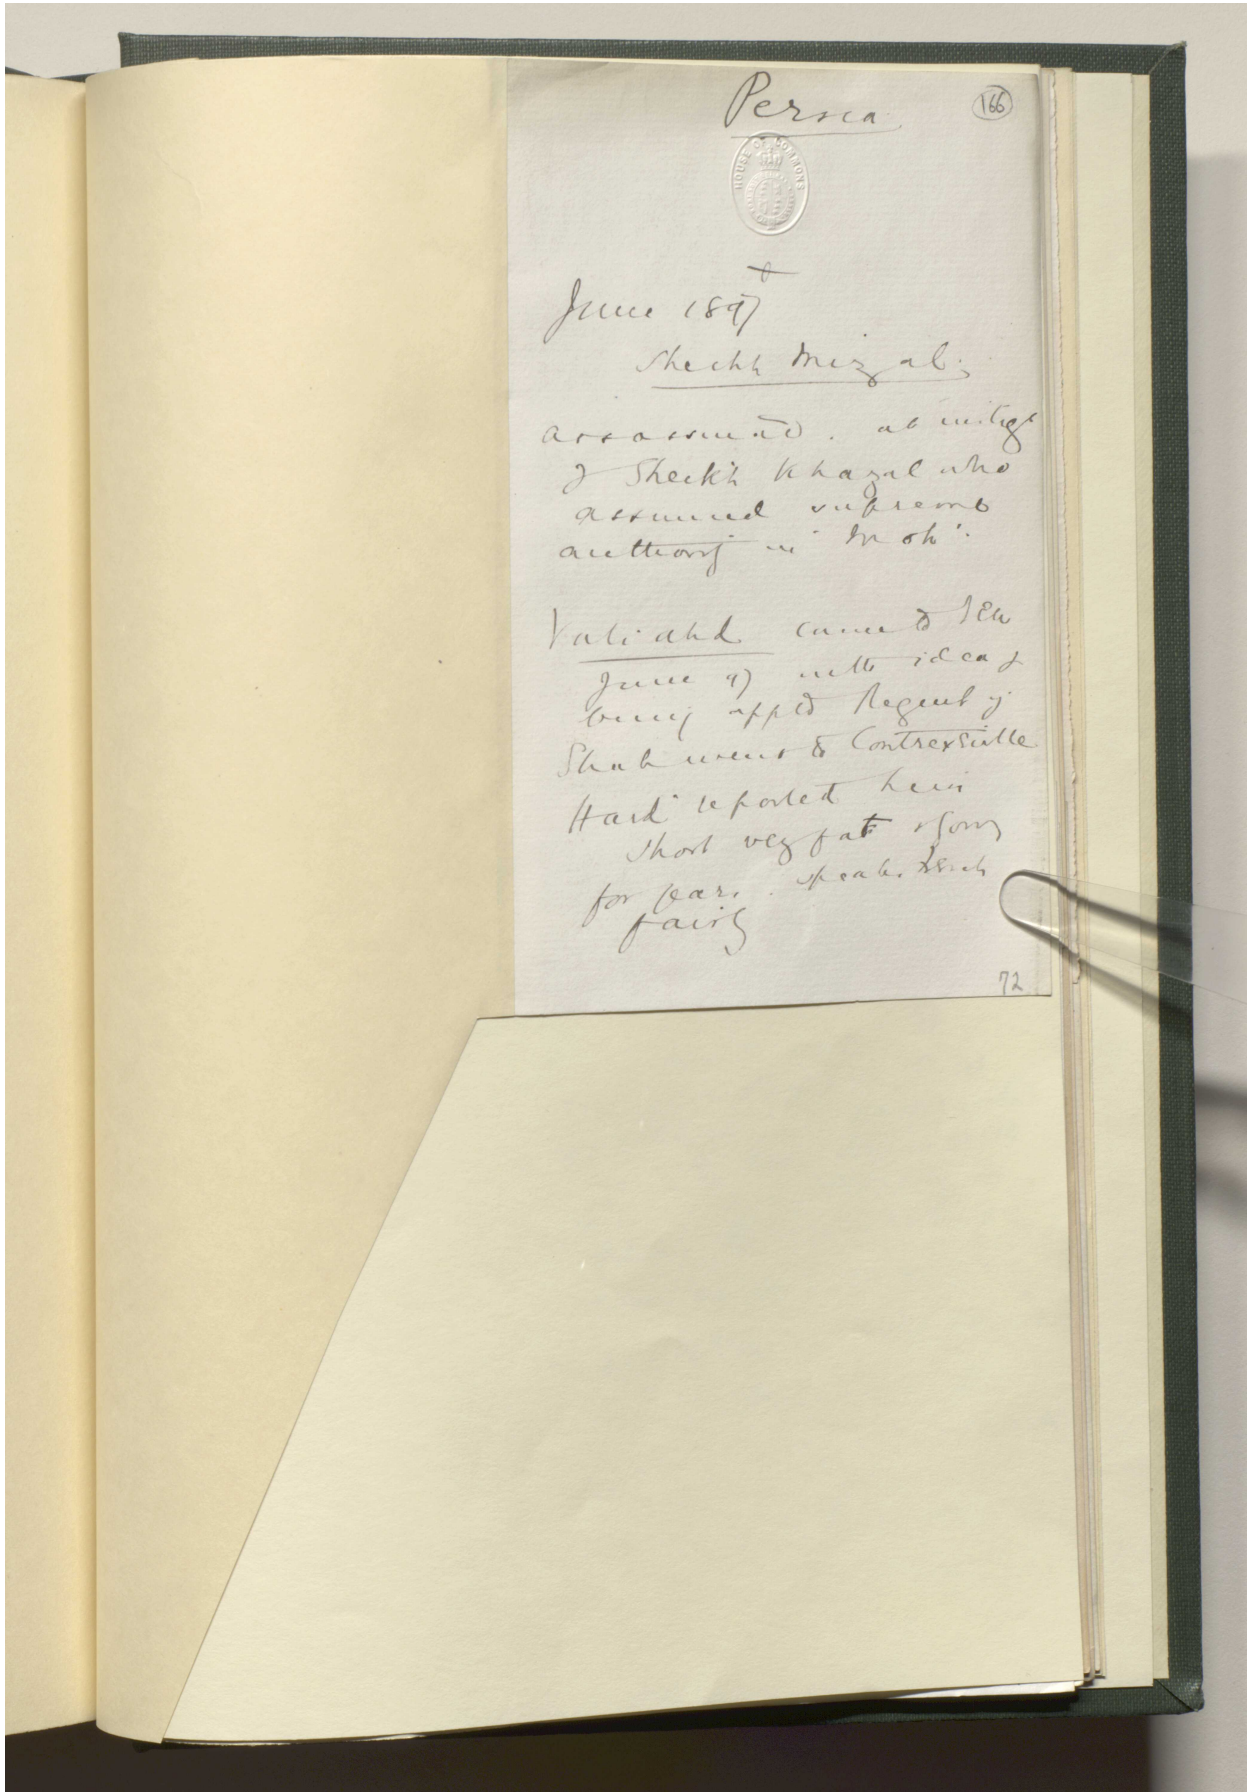 Persia
166
HOUSE OF COMMONS
June 1897
Sheikh Mizal.
assassinated. at instign
of Sheikh Khazal who
assumed supreme
authority in Moh:
Valiahd came to Teh
June 97 with idea of
being apptd Regent if
Shah went to Contrexeville
Hard: reported him
short very fat & going
for years. speaks French
fairly
72